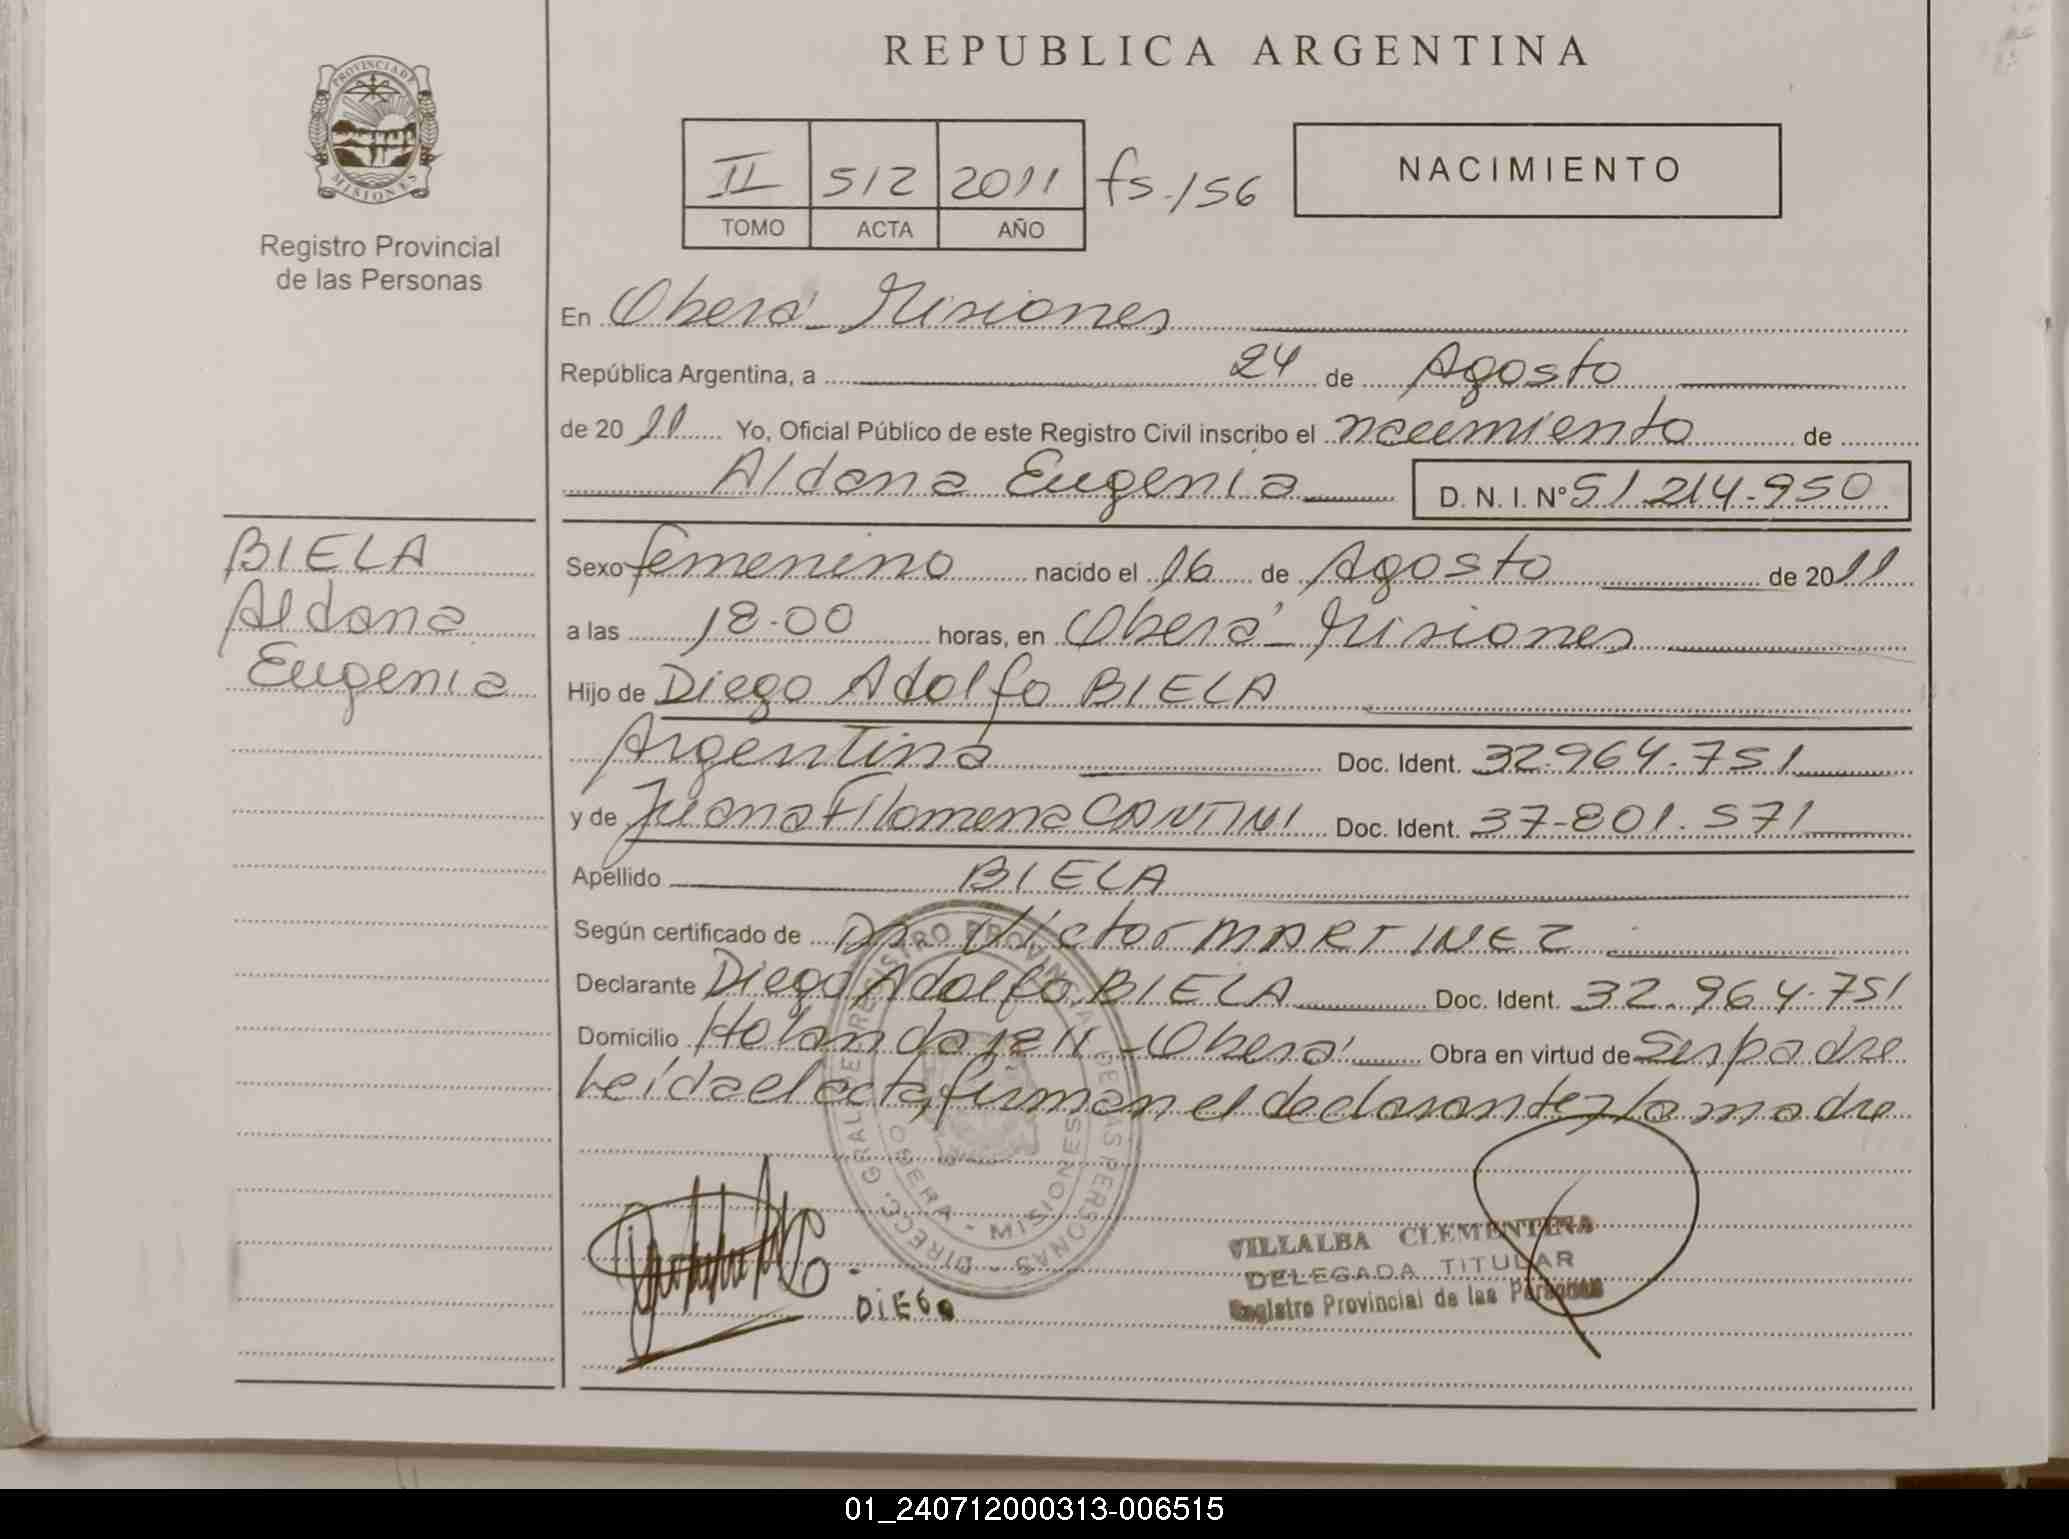 REPUBLICA ARGENTINA
PROVINCIA DE
MISIONES
Registro Provincial
de las Personas
II 512 2011 fs.156
TOMO ACTA AÑO
NACIMIENTO
En Oberá - Misiones
República Argentina, a 24 de Agosto
de 2011 Yo, Oficial Público de este Registro Civil inscribo el nacimiento de
Aldana Eugenia D. N. I. Nº 51.214.950
BIELA
Aldana
Eugenia
Sexo femenino nacido el 16 de Agosto de 2011
a las 18.00 horas, en Oberá - Misiones
Hijo de Diego Adolfo BIELA
Argentina Doc. Ident. 32.964.751
y de Juana Filomena CANTINI Doc. Ident. 37.801.571
Apellido BIELA
Según certificado de Dr. Víctor MARTINEZ
Declarante Diego Adolfo BIELA Doc. Ident. 32.964.751
Domicilio Holanda - Oberá Obra en virtud de Ser padre
Leída el acta, firman el declarante y la madre
DIRECC. GRAL. DE REGISTRO PROVINCIAL DE LAS PERSONAS
OBERA - MISIONES
DIEGO
VILLALBA CLEMENTINA
DELEGADA TITULAR
Registro Provincial de las Personas
01_240712000313-006515